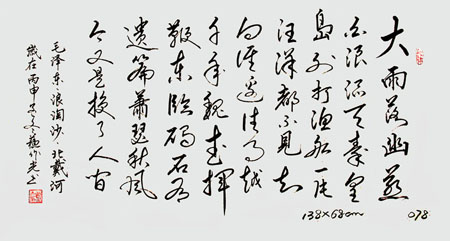 大雨落幽燕
白浪滔天秦皇
岛外打渔船一片
汪洋都不见知
向谁边往事越
千年魏武挥
鞭东临碣石有
遗篇萧瑟秋风
今又是换了人间
毛泽东浪淘沙北戴河
岁在丙申
138×68cm
078